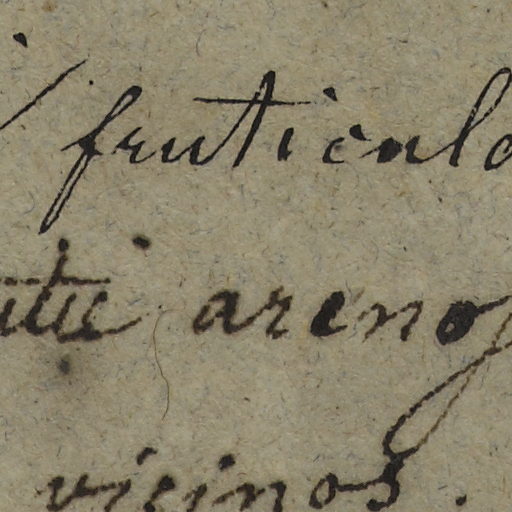 fruticulo
arenos
vicinos.